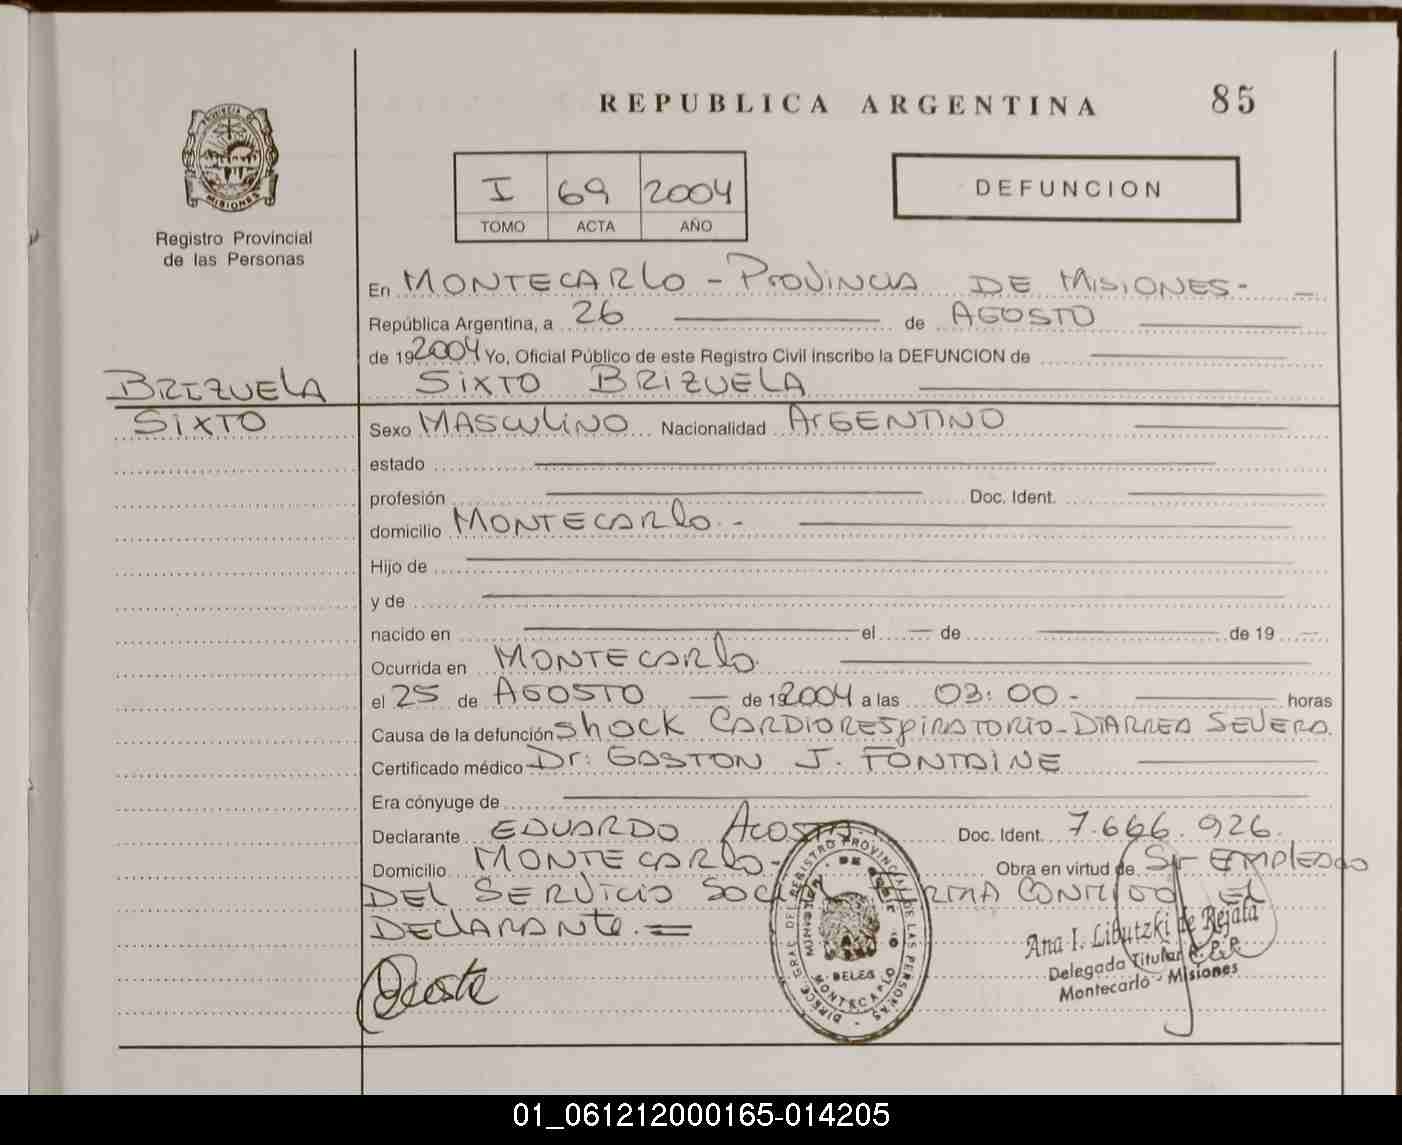 REPUBLICA ARGENTINA
85
MISIONES
Registro Provincial
de las Personas
I 69 2004
TOMO ACTA AÑO
DEFUNCION
En MONTECARLO - PROVINCIA DE MISIONES-
República Argentina, a 26 de AGOSTO
de 192004 Yo, Oficial Público de este Registro Civil inscribo la DEFUNCION de
BRIZUELA
SIXTO
SIXTO BRIZUELA
Sexo MASCULINO Nacionalidad ARGENTINO
estado
profesión Doc. Ident.
domicilio MONTECARLO.-
Hijo de
y de
nacido en el de de 19
Ocurrida en MONTECARLO.
el 25 de AGOSTO de 192004 a las 03:00- horas
Causa de la defunción SHOCK CARDIORESPIRATORIO-DIARREA SEVERA.
Certificado médico Dr: GASTON J. FONTAINE
Era cónyuge de
Declarante EDUARDO ACOSTA Doc. Ident. 7.666.926.
Domicilio MONTECARLO- Obra en virtud de Sr EMPLEADO
DEL SERVICIO SOC FIRMA CONMIGO EL
DECLARANTE.=
Acosta
DIRECC. GRAL. DEL REGISTRO PROVINCIAL DE LAS PERSONAS
MONTECARLO
Ana I. Libutzki de Rejala
Delegada Titular R.P.P.
Montecarlo - Misiones
01_061212000165-014205